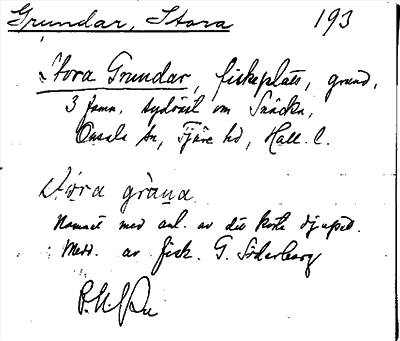 Grundar, Stora 193
Stora Grundar, fiskeplats, grund,
3 famn. sydväst om Snäcka,
Onsala sn, Fjäre hd, Hall. l.
stóra gròna
Namnet med anl. av det korta djupet.
Medd. av fisk. G. Söderberg